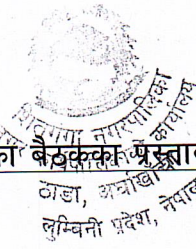 शितगंगा नगरपालिका
कार्यालय
का बैठकका प्रस्ताव
ठाडा, अर्घाखाँ
लुम्बिनी प्रदेश, नेपाल